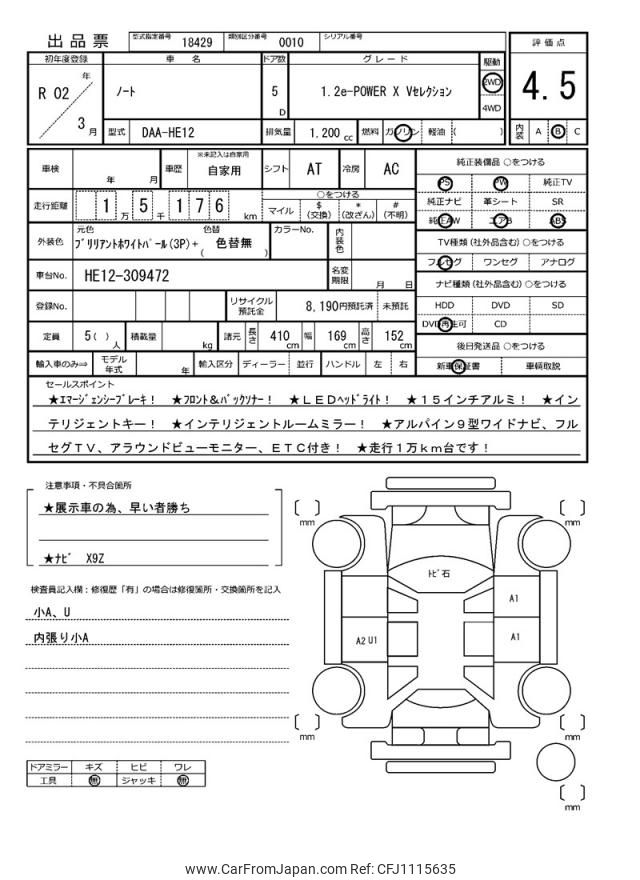 出品票
型式指定番号 18429 類別区分番号 0010 シリアル番号
初年度登録 車名 ドア数 グレード 駆動 評価点
R 02 年 ノート 5 D 1.2e-POWER X Vセレクション 2WD 4.5
4WD
3 月 型式 DAA-HE12 排気量 1,200 cc 燃料 ガソリン 軽油 ( ) 内装 A B C
車検 年 月 車歴 ※未記入は自家用 自家用 シフト AT 冷房 AC 純正装備品 ○をつける
PS PW 純正TV
走行距離 1 万 5 千 1 7 6 km ○をつける
マイル $ (交換) * (改ざん) # (不明)
純正ナビ 革シート SR
純正AW エアB ABS
外装色 元色 ブリリアントホワイトパール(3P)+ 色替 ( 色替無 ) カラーNo. 内装色
TV種類 (社外品含む) ○をつける
フルセグ ワンセグ アナログ
車台No. HE12-309472 名変期限 月 日
ナビ種類 (社外品含む) ○をつける
登録No. リサイクル預託金 8,190円預託済 未預託
HDD DVD SD
DVD再生可 CD
定員 5( ) 人 積載量 kg 諸元 長さ 410 cm 幅 169 cm 高さ 152 cm
後日発送品 ○をつける
輸入車のみ⇒ モデル年式 年 輸入区分 ディーラー 並行 ハンドル 左 右
新車保証書 車輌取説
セールスポイント
★エマージェンシーブレーキ! ★フロント&バックソナー! ★LEDヘッドライト! ★15インチアルミ! ★イン
テリジェントキー! ★インテリジェントルームミラー! ★アルパイン9型ワイドナビ、フル
セグTV、アラウンドビューモニター、ETC付き! ★走行1万km台です!
注意事項・不具合箇所
★展示車の為、早い者勝ち
★ナビ X9Z
検査員記入欄:修復歴「有」の場合は修復箇所・交換箇所を記入
小A、U
内張り小A
ドアミラー キズ ヒビ ワレ
工具 無 ジャッキ 無
mm
mm
トビ石
A1
A2 U1
A1
mm
mm
mm
www.CarFromJapan.com Ref: CFJ1115635